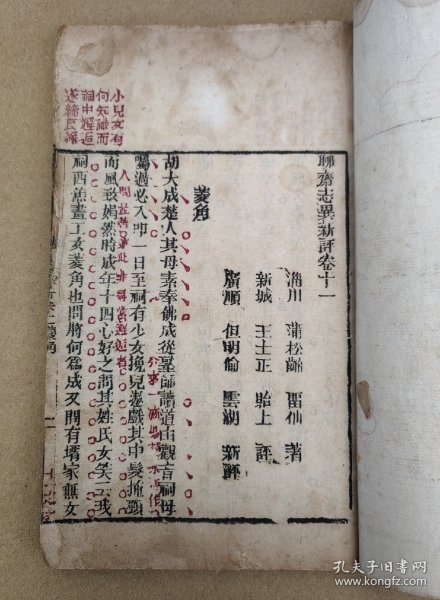 聊齋志異新評卷十一
淄川　蒲松齡　留仙　著
新城　王士正　貽上　評
廣順　但明倫　雲湖　新評
菱角
胡大成楚人其母素奉佛成從塾師讀道由觀音祠母
囑過必入叩一日至祠有少女挽兒遨戲其中髮裁掩頸
而風致娟然時成年十四心好之問其姓氏女笑云我
祠西焦畫工女菱角也問將何爲成又問有壻家無女
小兒女有
何知識而
祠中邂逅
遂締良緣
孔夫子旧书网
www.kongfz.com